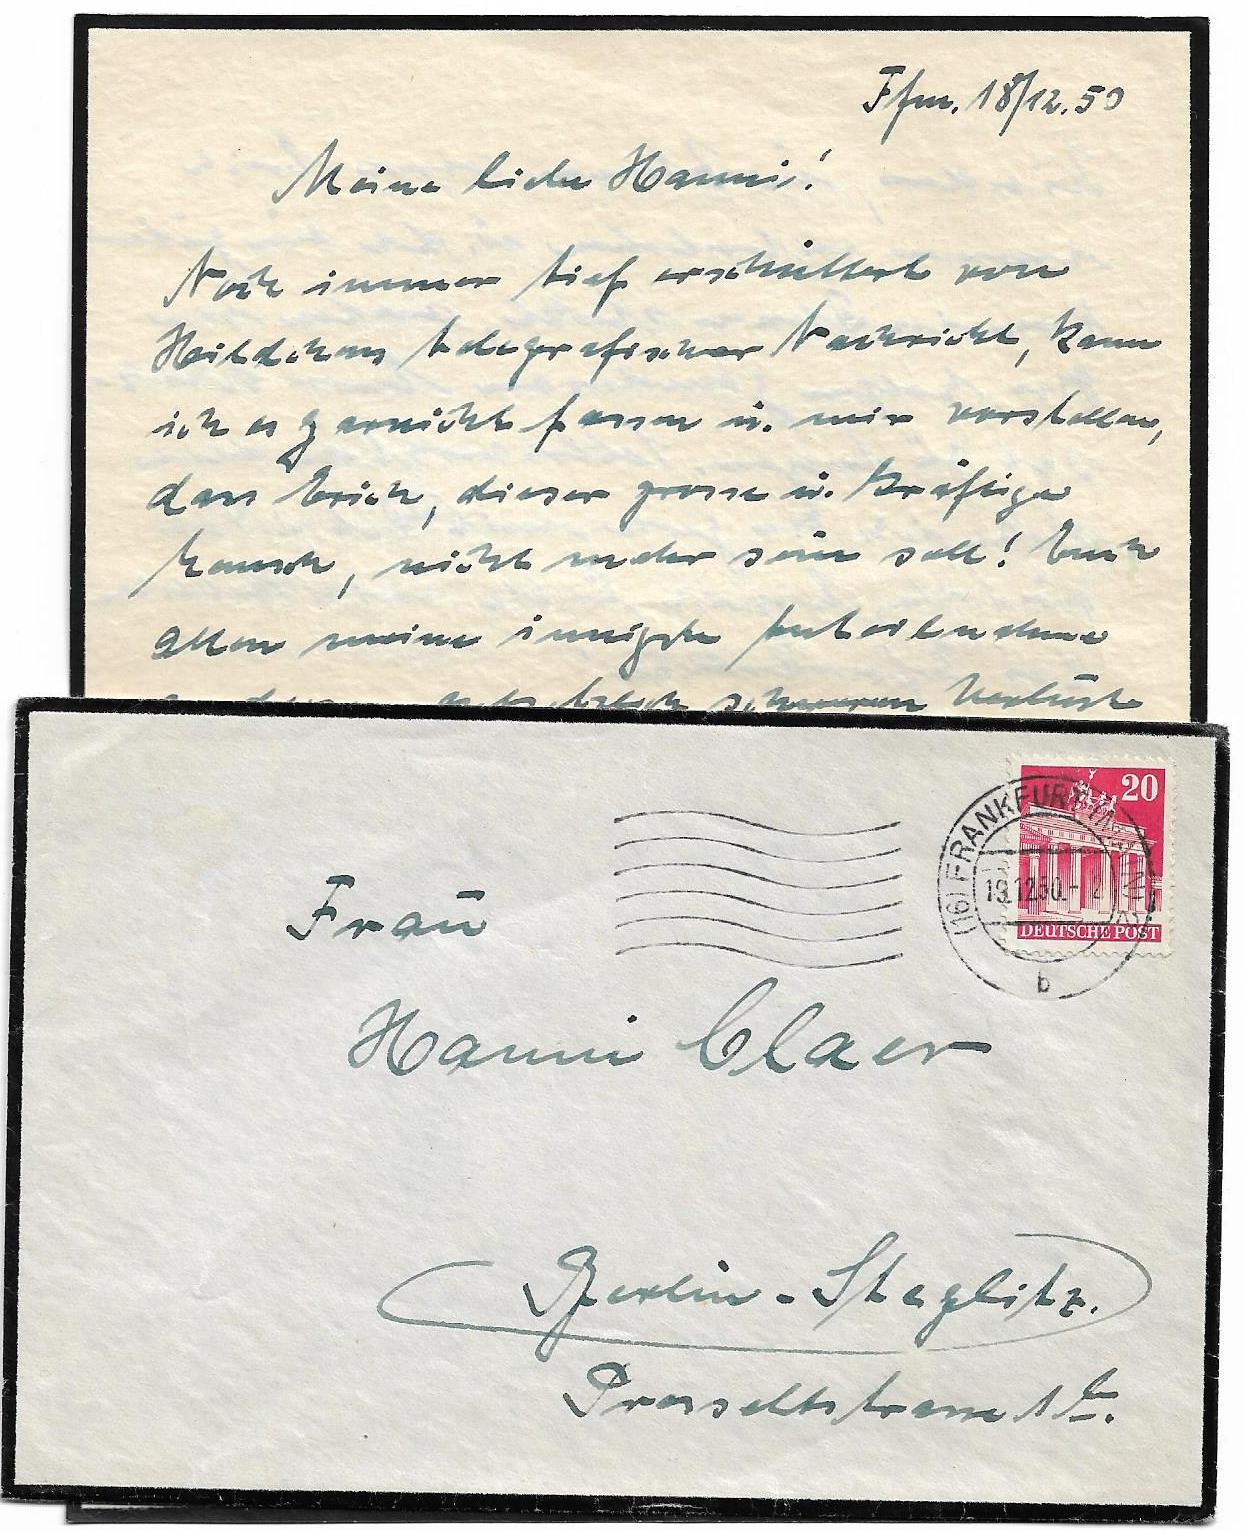 Ffm. 18/12.50
Meine liebe Hanni!
Noch immer tief erschüttert von
Heildchens telegrafischer Nachricht, kann
ich es garnicht fassen u. mir vorstellen,
dass Erich, dieser grosse u. kräftige
Mensch, nicht mehr sein soll! Euch
allen meine innigste Anteilnahme
schweren Verlust
20
DEUTSCHE POST
(16) FRANKFURT (MAIN) 2
19.12.50.- 2
b
Frau
Hanni Claer
Berlin-Steglitz.